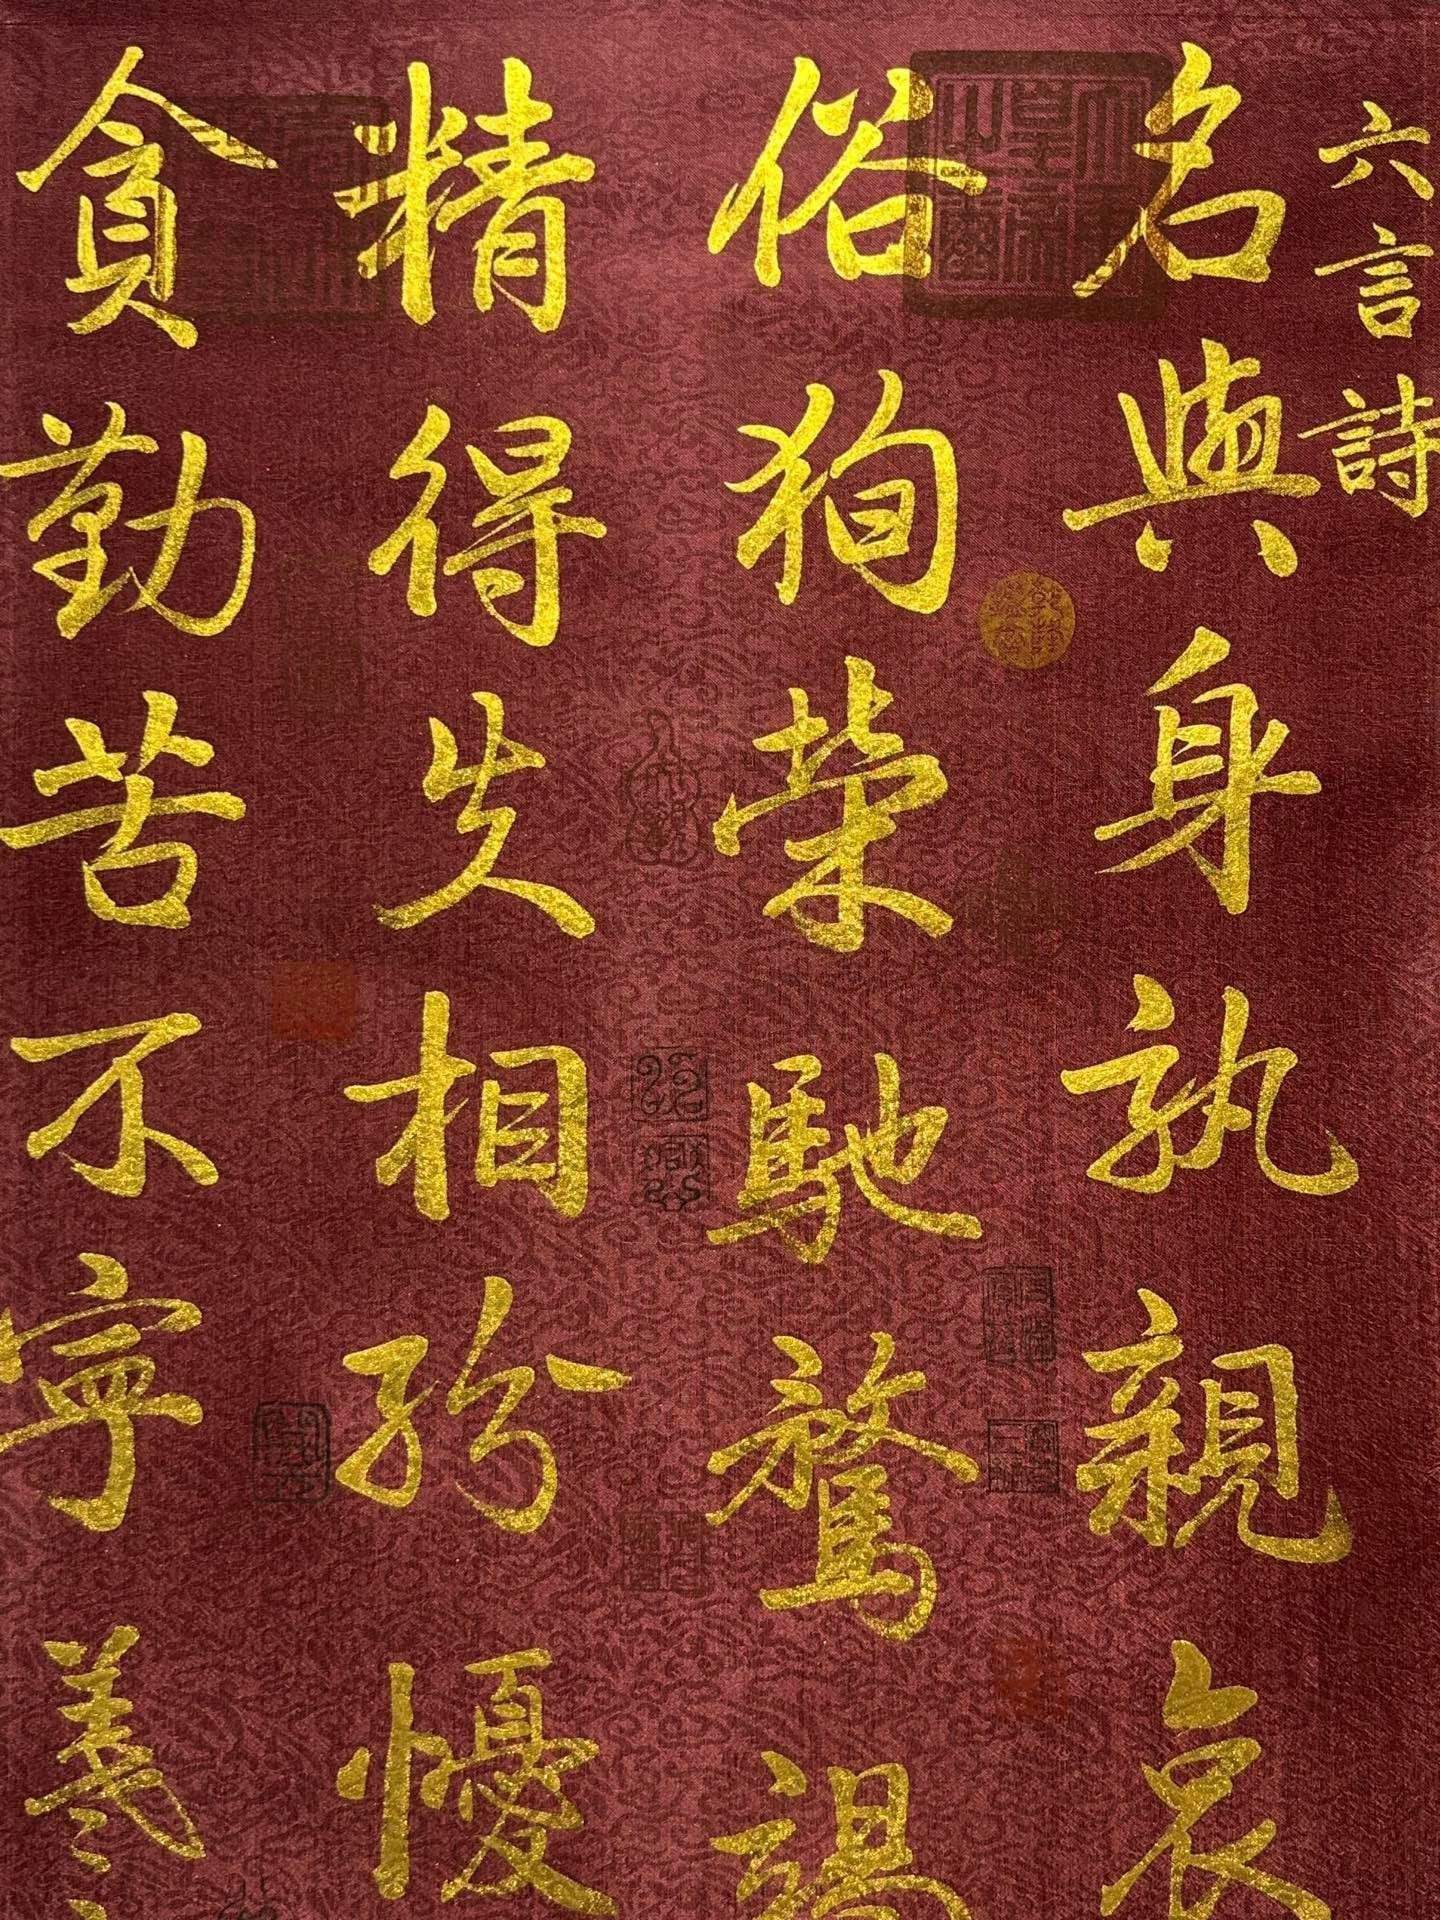 六言詩
名與身孰親哀
俗徇榮馳騖竭
精得失相紛憂
貪勤苦不寧